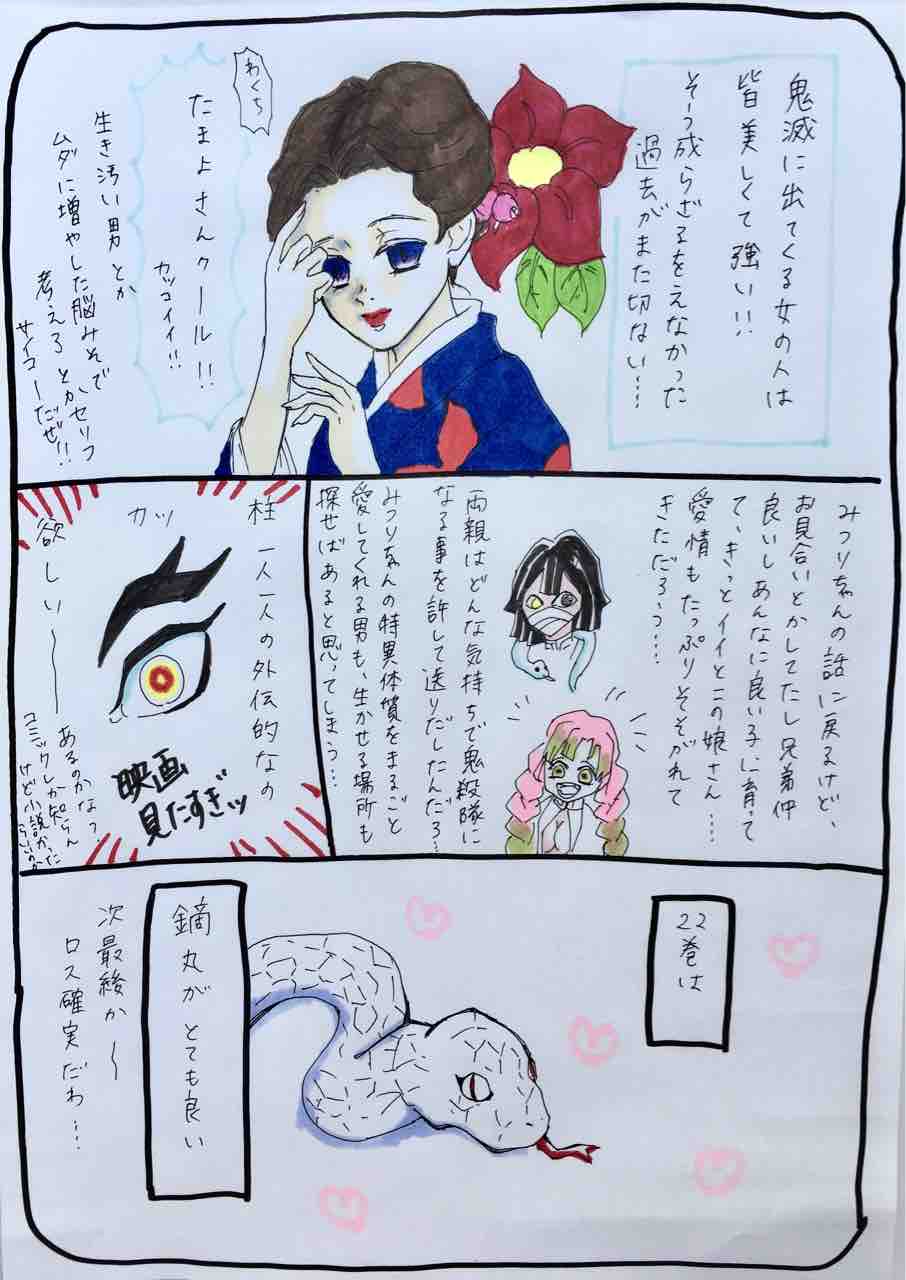 鬼滅に出てくる女の人は
皆美しくて強い!!
そう成らざるをえなかった
過去がまた切ない…
わくち
たまよさんクール!!
カッコイイ!!
生き汚い男とか
ムダに増やした脳みそで
考えろとかセリフ
サイコーだぜ!!
みつりちゃんの話に戻るけど、
お見合いとかしてたし兄弟仲
良いしあんなに良い子に育って
て、きっとイイとこの娘さん…
愛情もたっぷりそそがれて
きただろう…
両親はどんな気持ちで鬼殺隊に
なる事を許して送りだしたんだろ…
みつりちゃんの特異体質をまるごと
愛してくれる男も、生かせる場所も
探せばあると思ってしまう…
柱一人一人の外伝的なの
カッ
欲しい〜
あるのかなっ
コミックしか知らん
けど小説かった
らいいのか
映画
見たすぎッ
22巻は
鏑丸がとても良い
次最終か〜
ロス確実だわ…